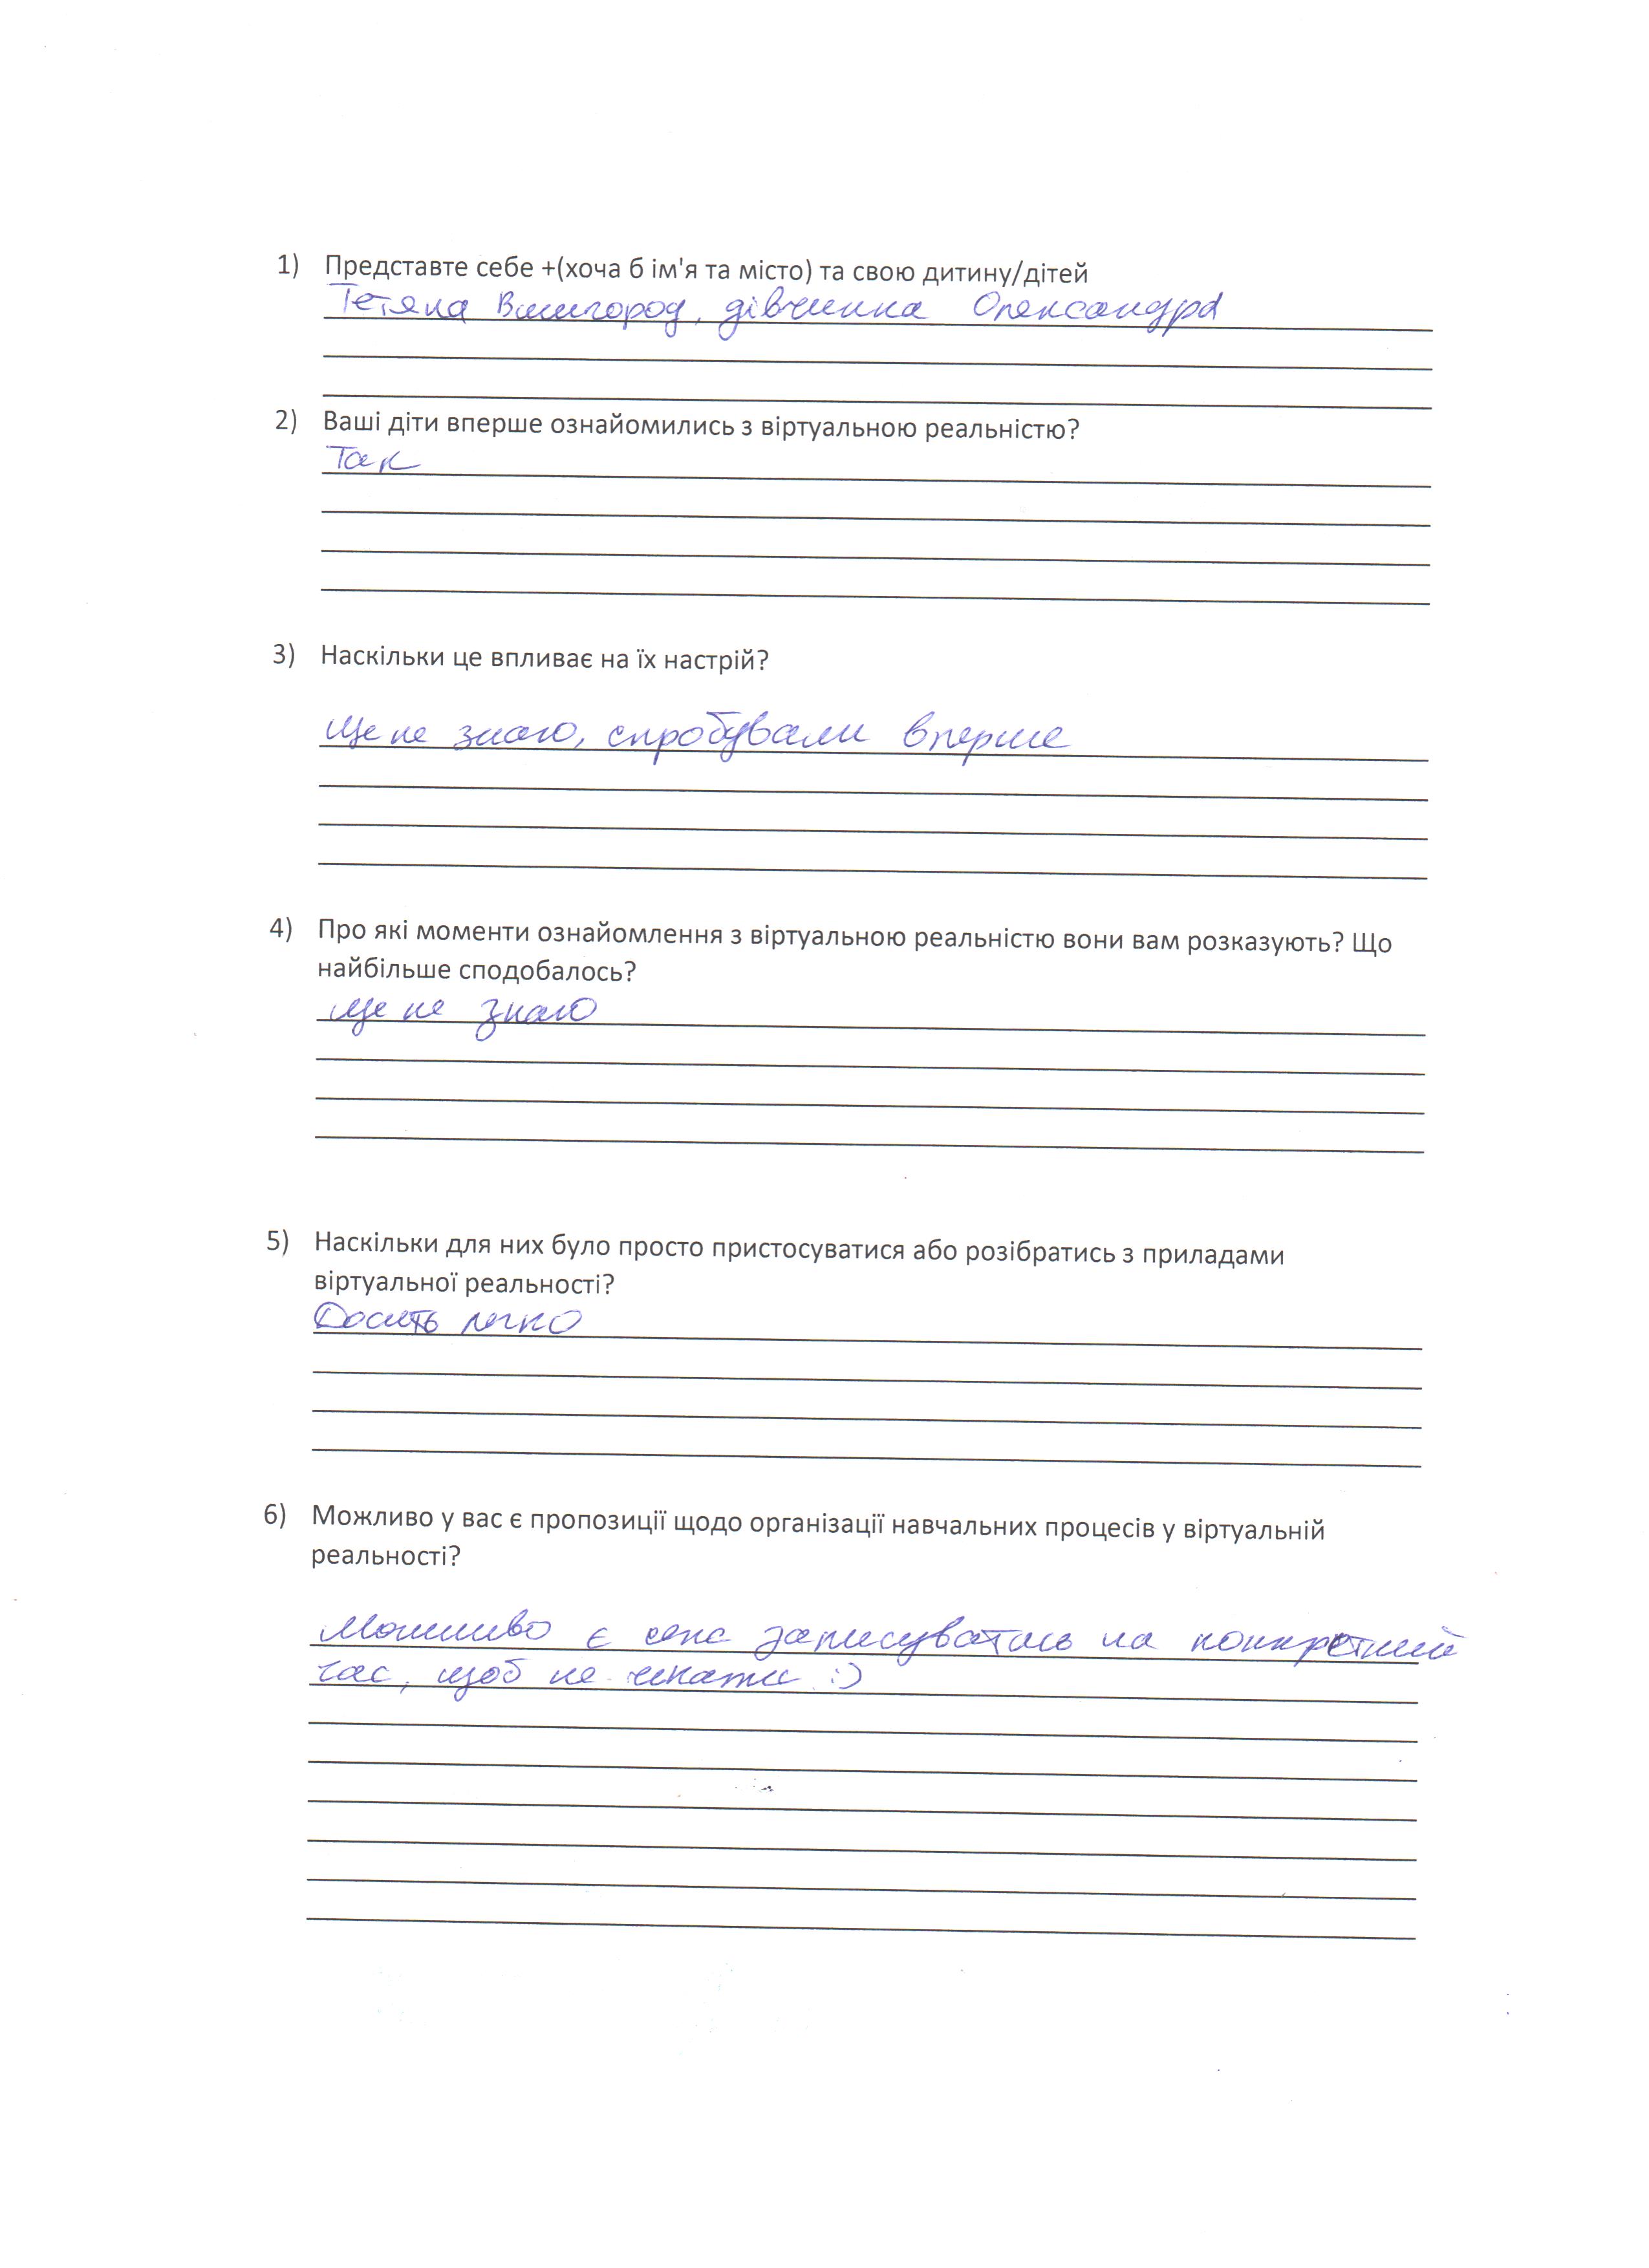 1) Представте себе +(хоча б ім'я та місто) та свою дитину/дітей
Тетяна Вишгород, дівчинка Олександра
2) Ваші діти вперше ознайомились з віртуальною реальністю?
Так
3) Наскільки це впливає на їх настрій?
Ще не знаю, спробували вперше
4) Про які моменти ознайомлення з віртуальною реальністю вони вам розказують? Що
найбільше сподобалось?
Ще не знаю
5) Наскільки для них було просто пристосуватися або розібратись з приладами
віртуальної реальності?
Досить легко
6) Можливо у вас є пропозиції щодо організації навчальних процесів у віртуальній
реальності?
Можливо є сенс записуватись на конкретний
час, щоб не чекати :)